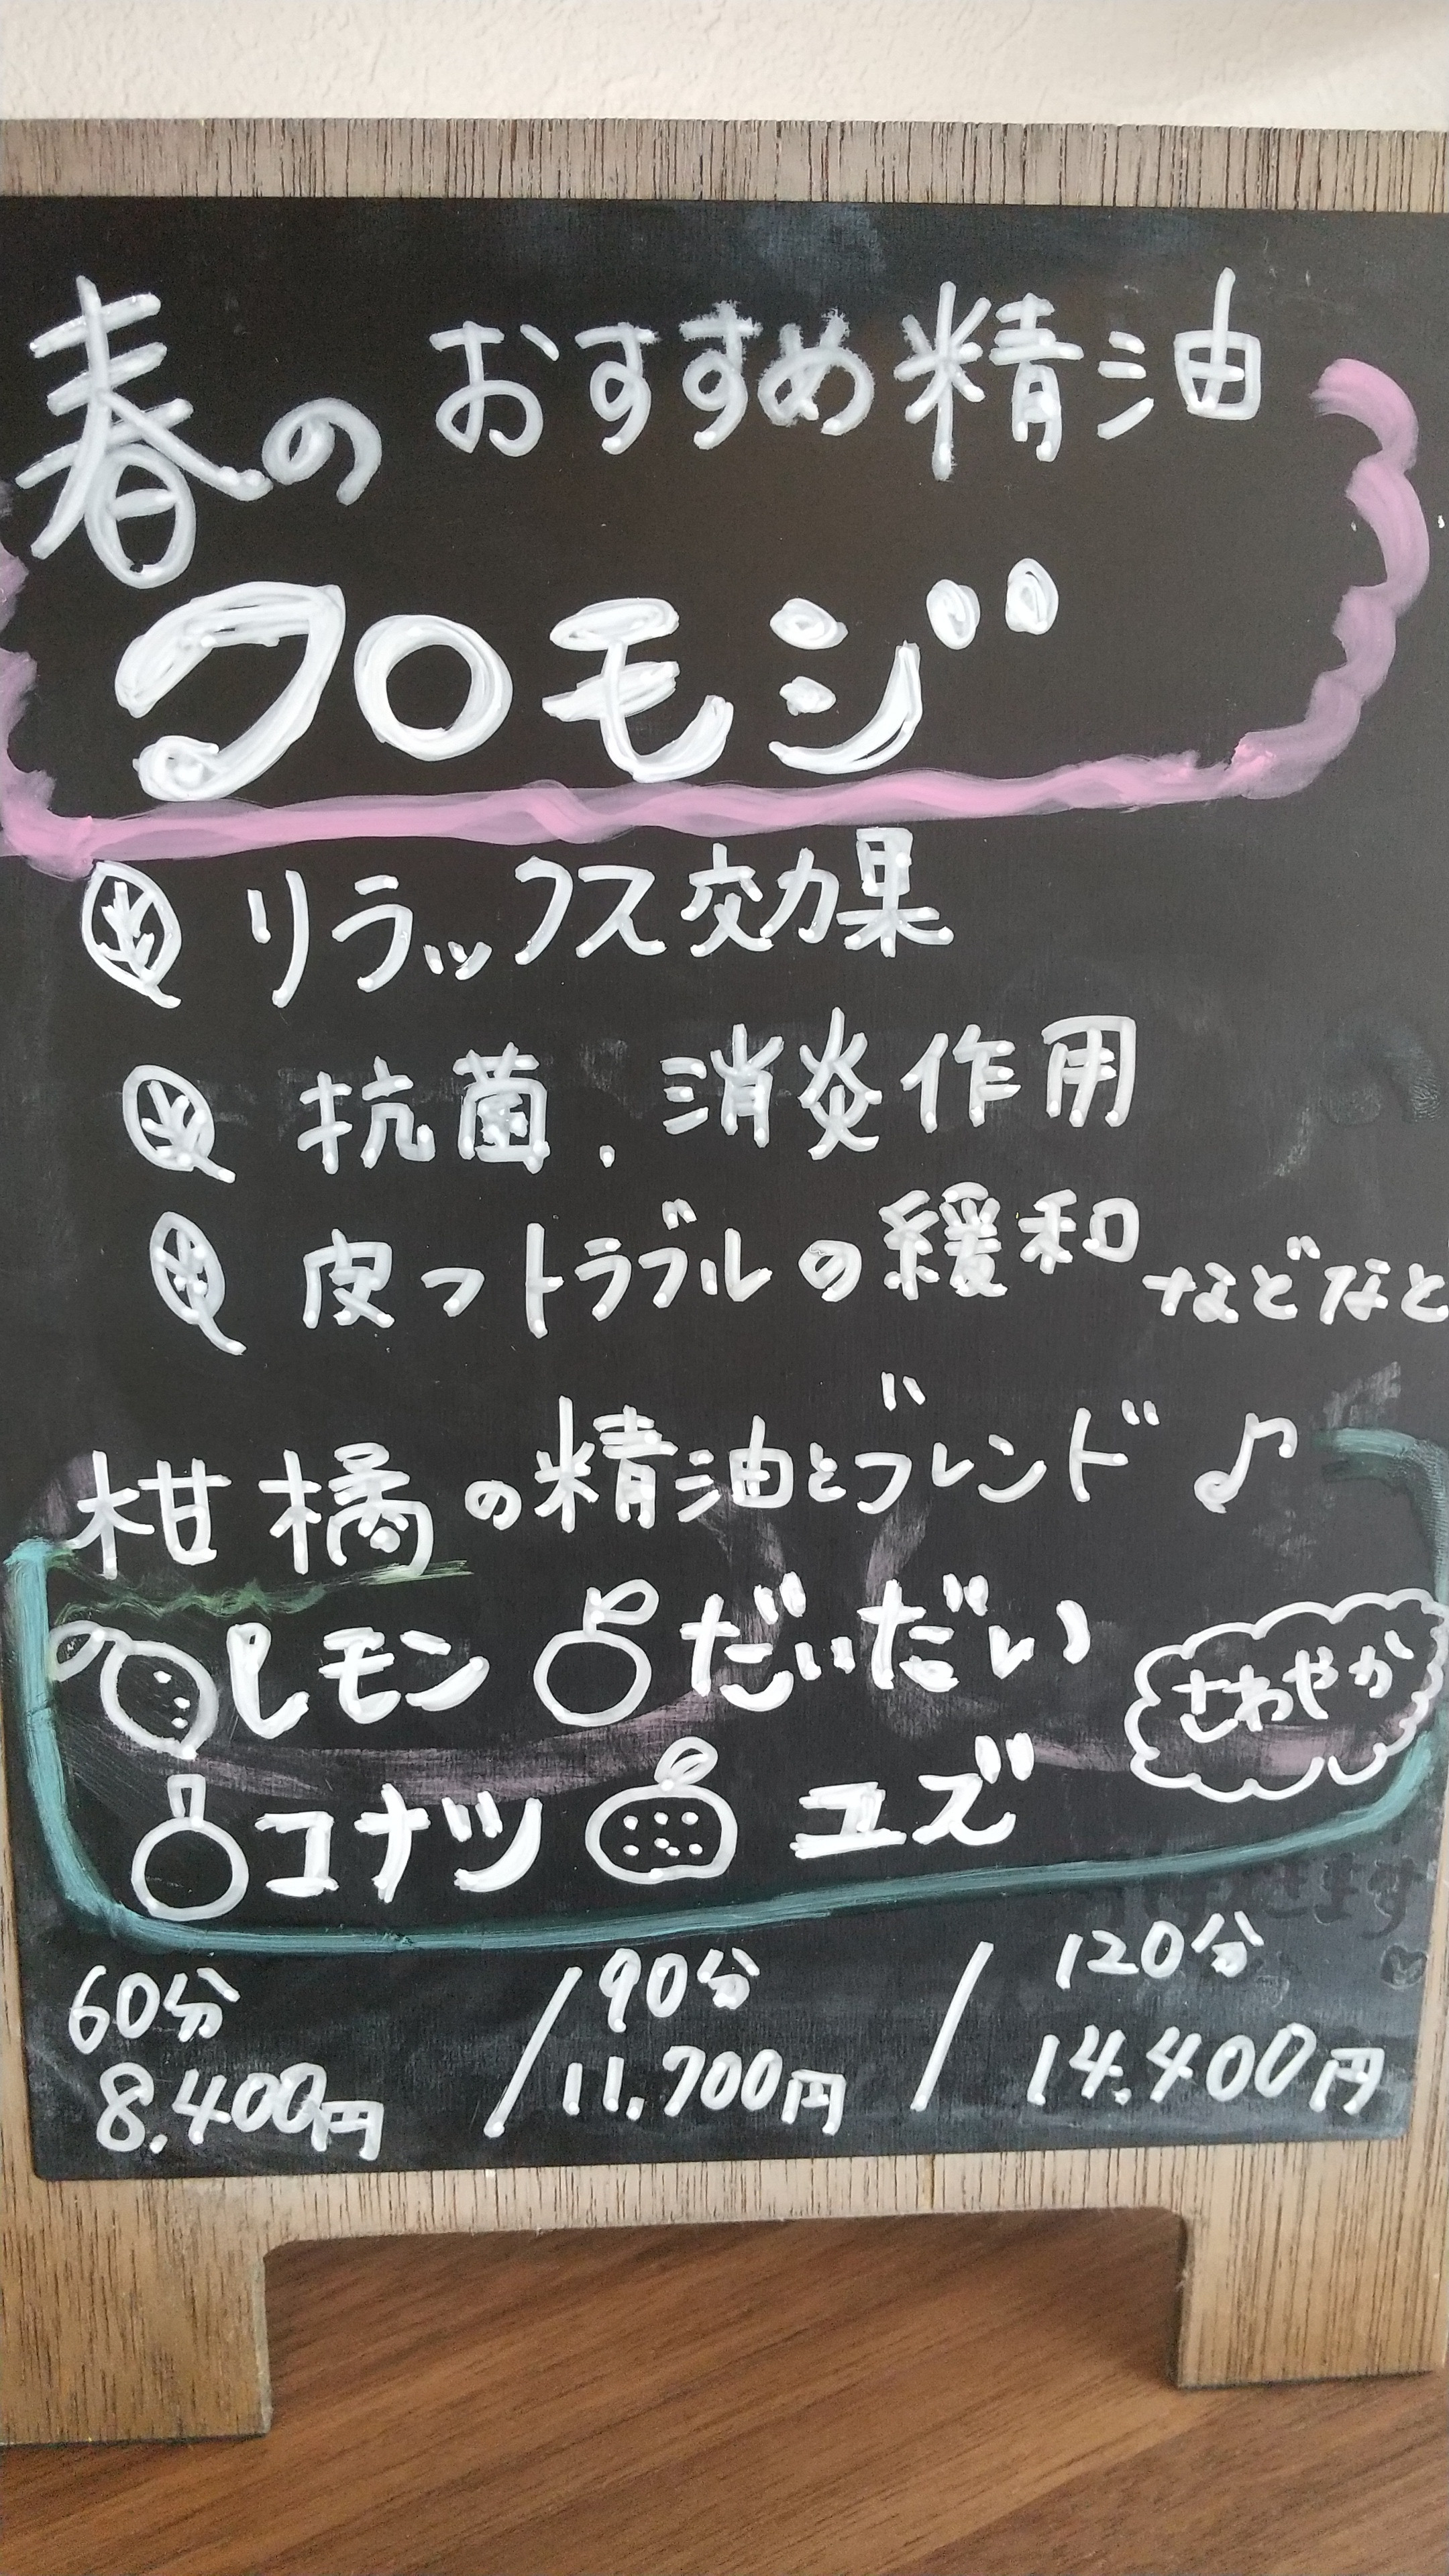 春のおすすめ精油
クロモジ
リラックス効果
抗菌、消炎作用
皮フトラブルの緩和 などなど
柑橘の精油とブレンド♪
レモン だいだい
コナツ ユズ
さわやか
60分 / 90分 / 120分
8,400円 11,700円 14,400円